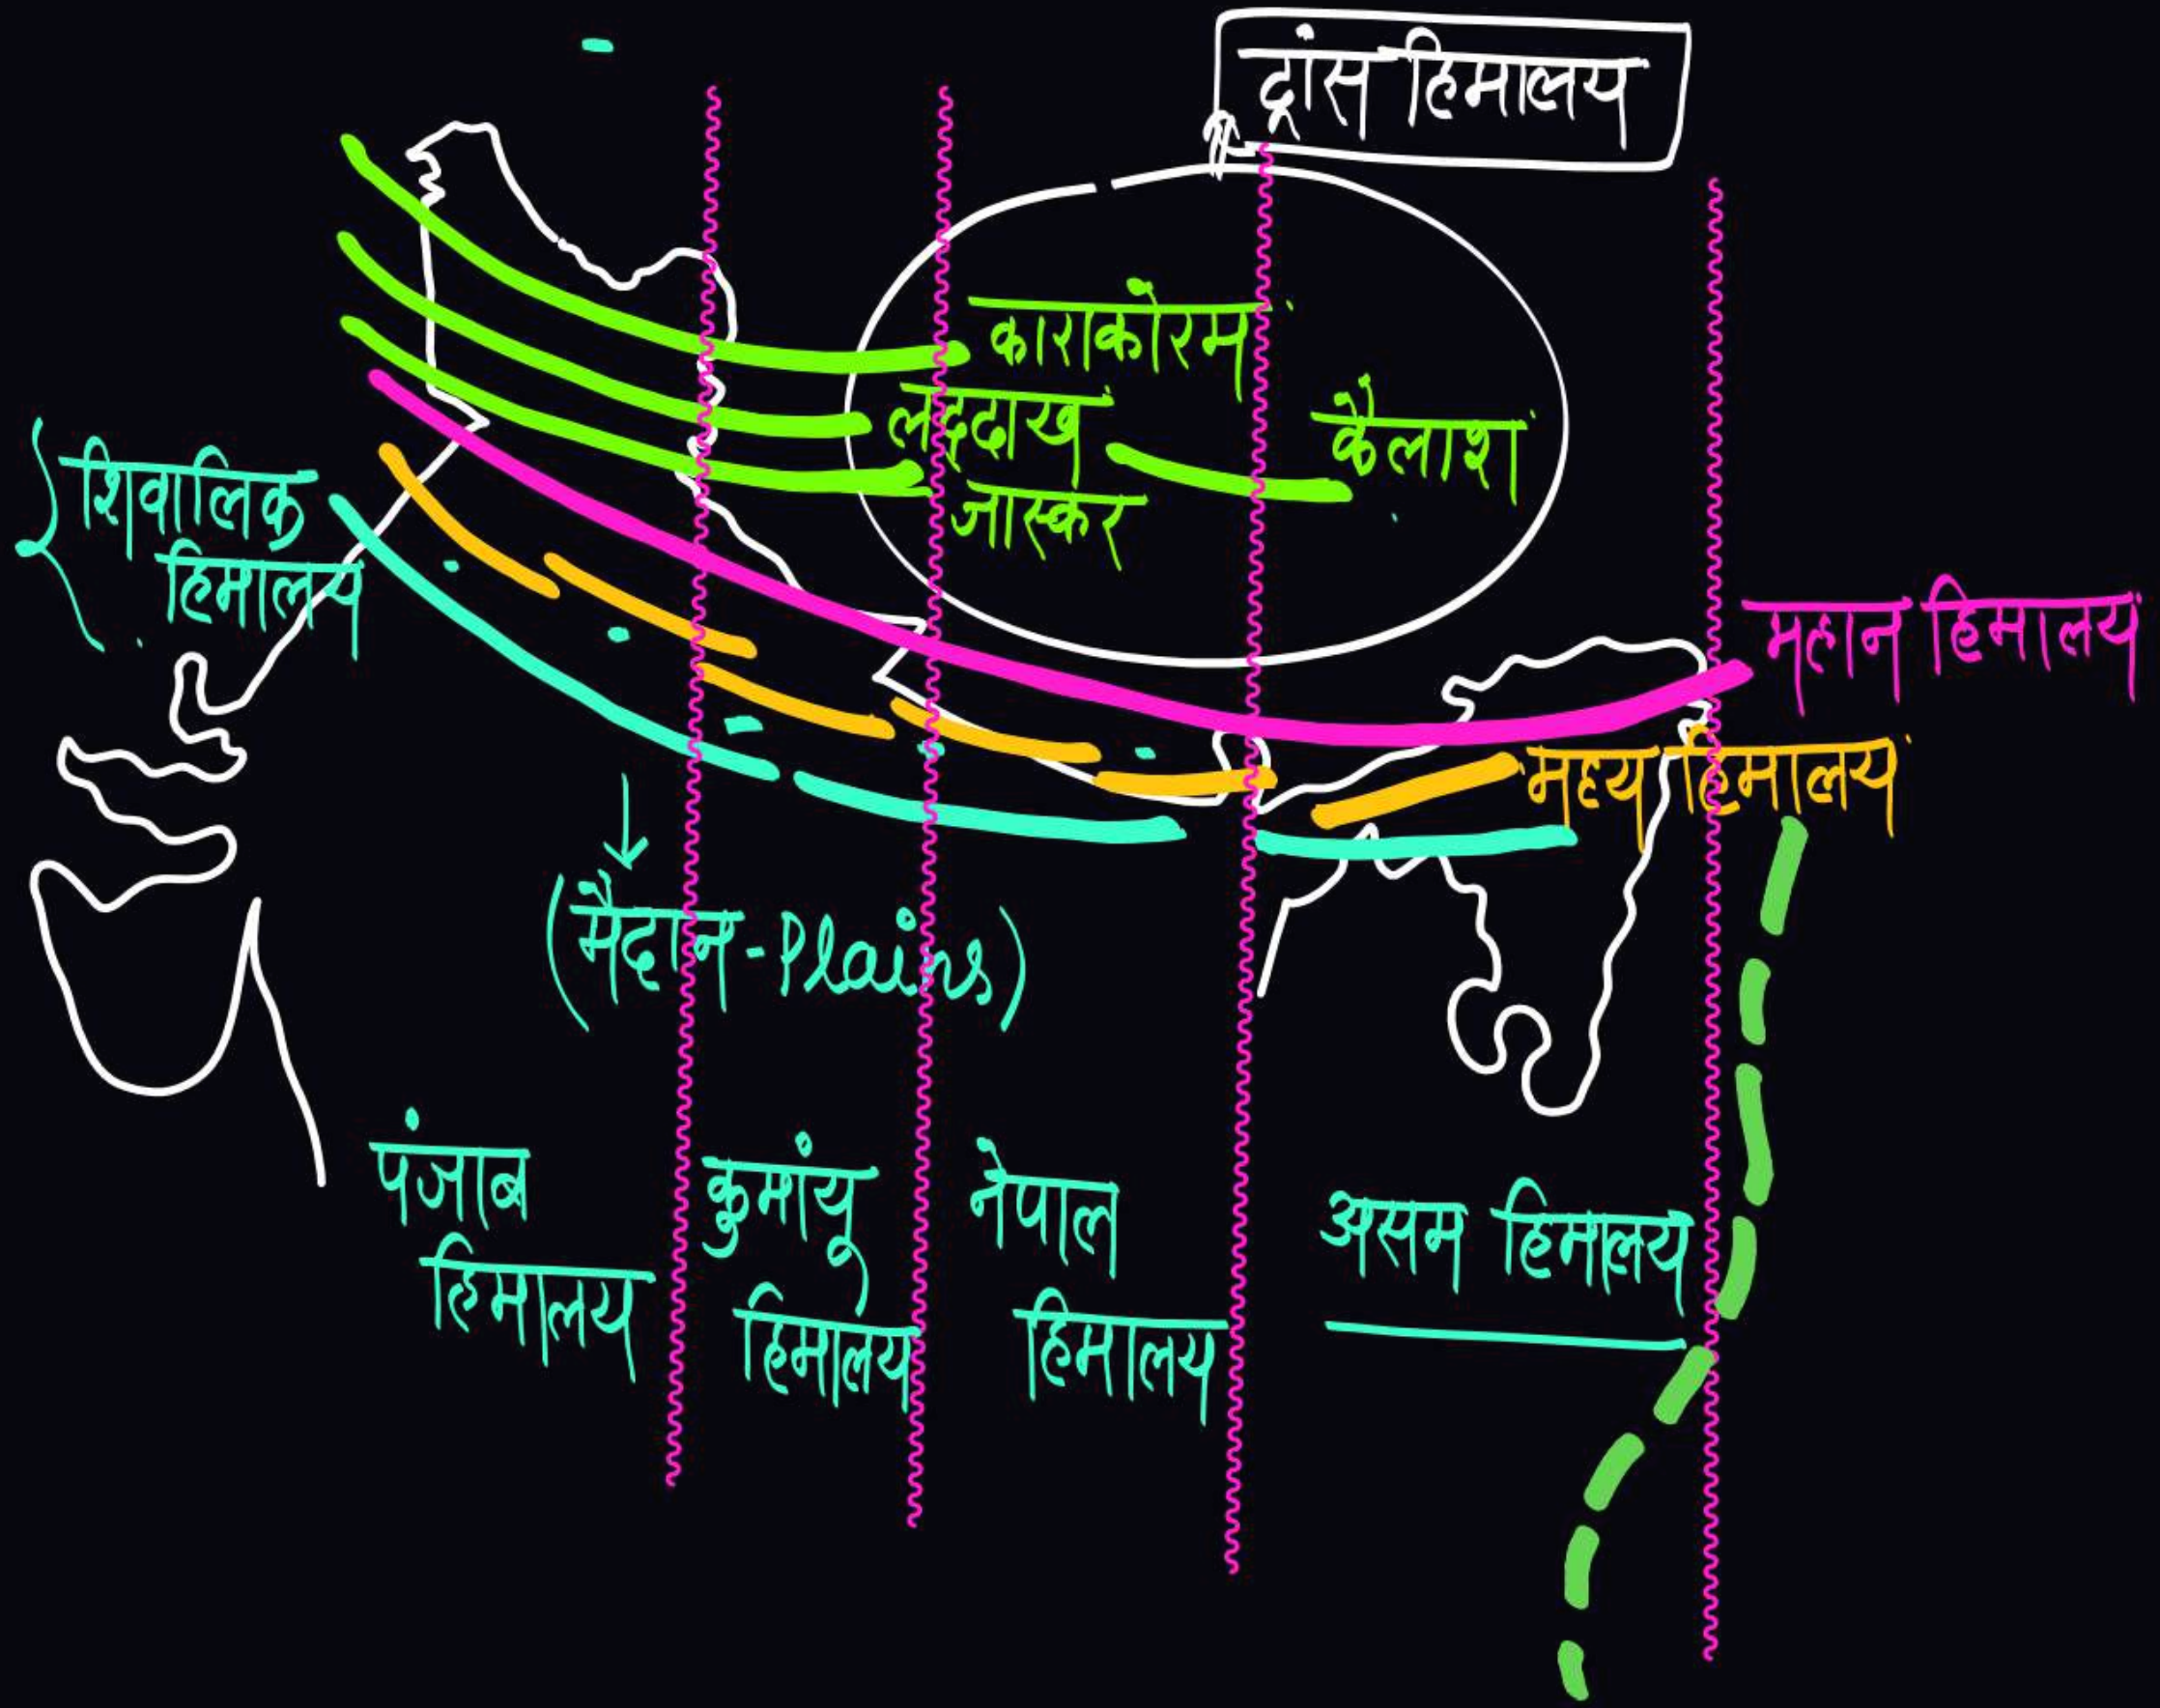 ट्रांस हिमालय
काराकोरम
लद्दाख
कैलाश
जास्कर
शिवालिक
हिमालय
महान हिमालय
मध्य हिमालय
(मैदान-Plains)
पंजाब
हिमालय
कुमांयू
हिमालय
नेपाल
हिमालय
असम हिमालय